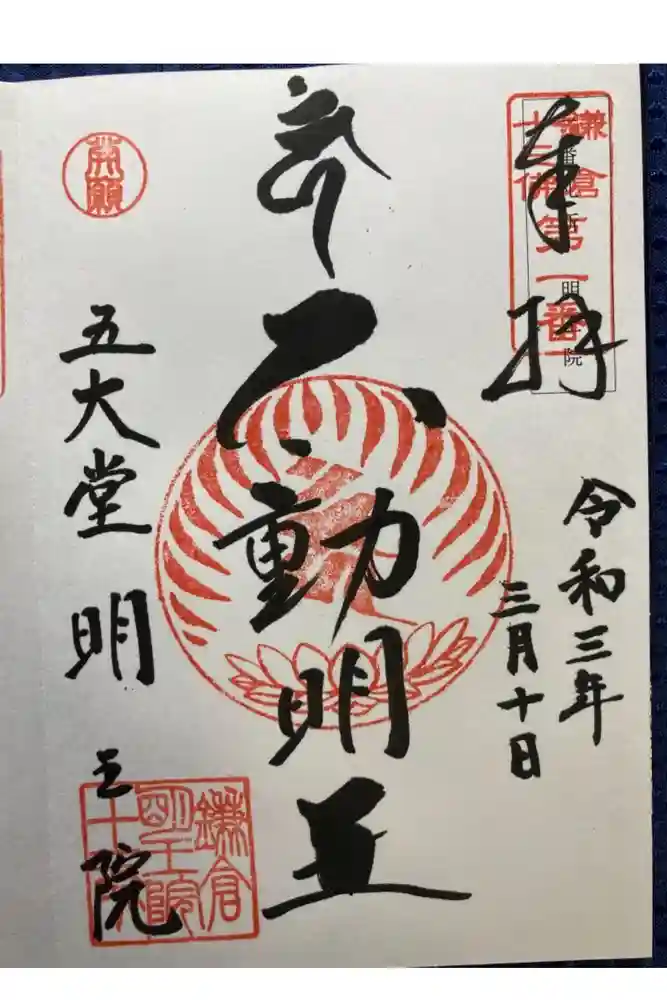 奉拝
鎌倉
十三佛
第一番
令和三年
三月十日
不動明王
五大堂 明王院
鎌倉
明王院